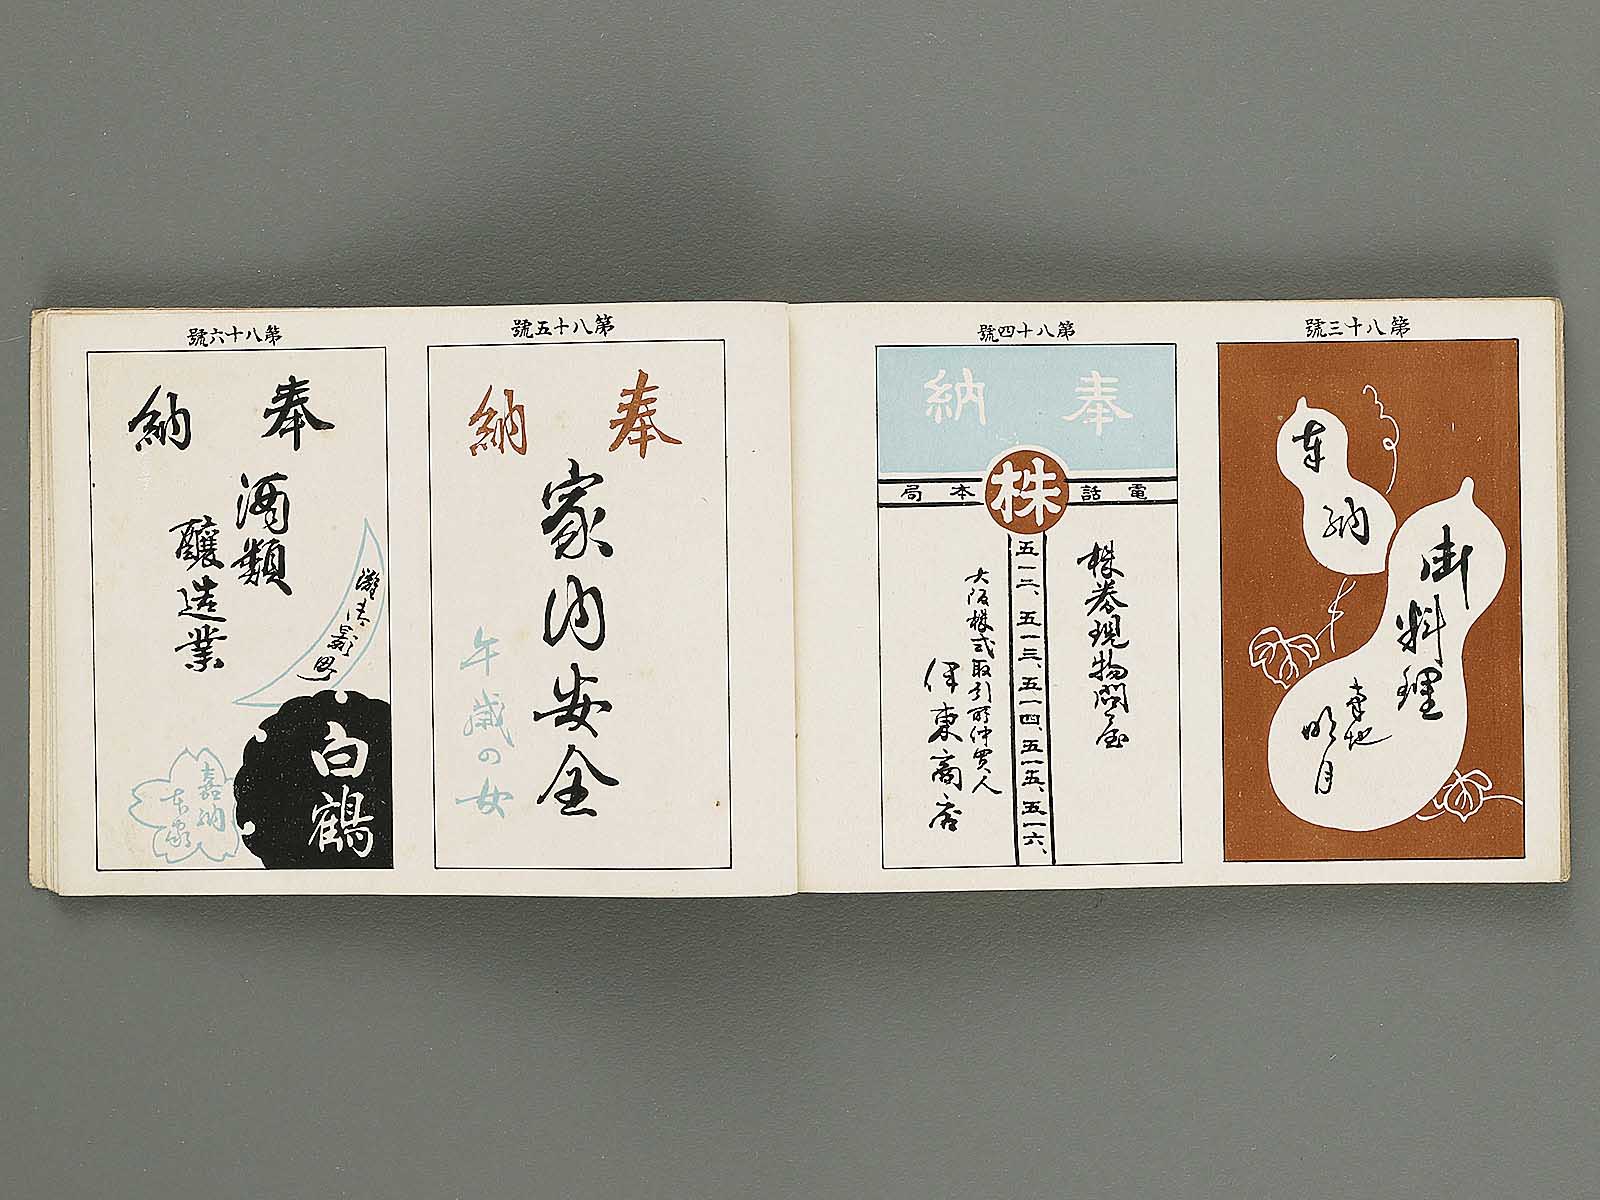 第八十三號
奉納
御料理
明月
第八十四號
奉納
電話本局
株
五一二、五一三、五一四、五一五、五一六、
株券現物問屋
大阪株式取引所仲買人
伊東商店
第八十五號
奉納
家内安全
午歳の女
第八十六號
奉納
酒類
醸造業
白鶴
嘉納
本家